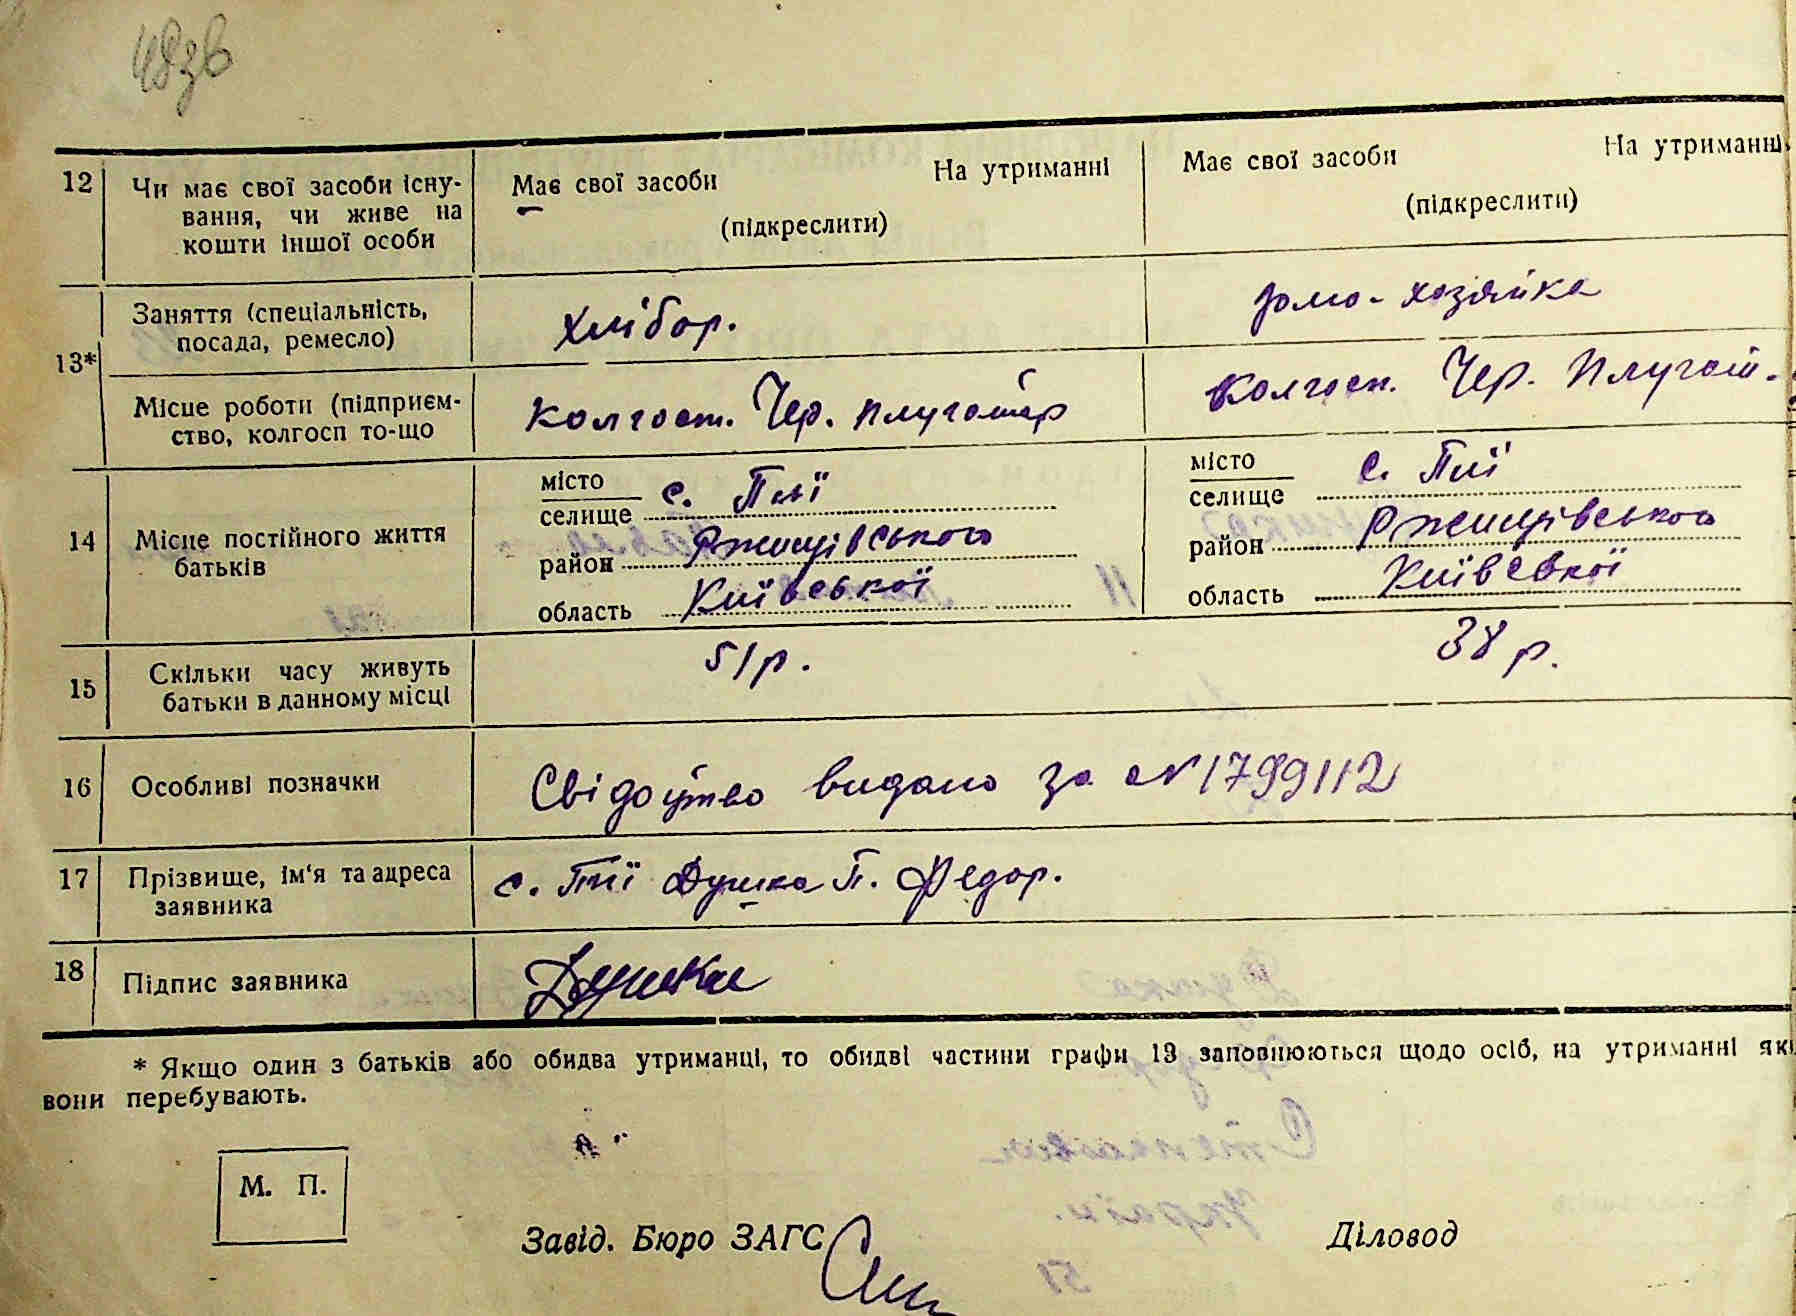 48зв
12 Чи має свої засоби існування, чи живе на кошти іншої особи
Має свої засоби На утриманні
(підкреслити)
Має свої засоби На утриманні
(підкреслити)
13* Заняття (спеціальність,
посада, ремесло)
хлібор.
домо-хозяйка
Місце роботи (підприєм-
ство, колгосп то-що
колгосп. Чер. плугатар
колгосп. Чер. плугат.
14 Місце постійного життя
батьків
місто
селище с. Пії
район Ржищівського
область Київської
місто
селище с. Пії
район Ржищівського
область Київської
15 Скільки часу живуть
батьки в данному місці
51 р.
38 р.
16 Особливі позначки
Свідоцтво видано за № 1799112
17 Прізвище, ім'я та адреса
заявника
с. Пії Душка П. Федор.
18 Підпис заявника
Душка
* Якщо один з батьків або обидва утриманці, то обидві частини графи 13 заповнюються щодо осіб, на утриманні які
вони перебувають.
М. П.
Завід. Бюро ЗАГС
Діловод